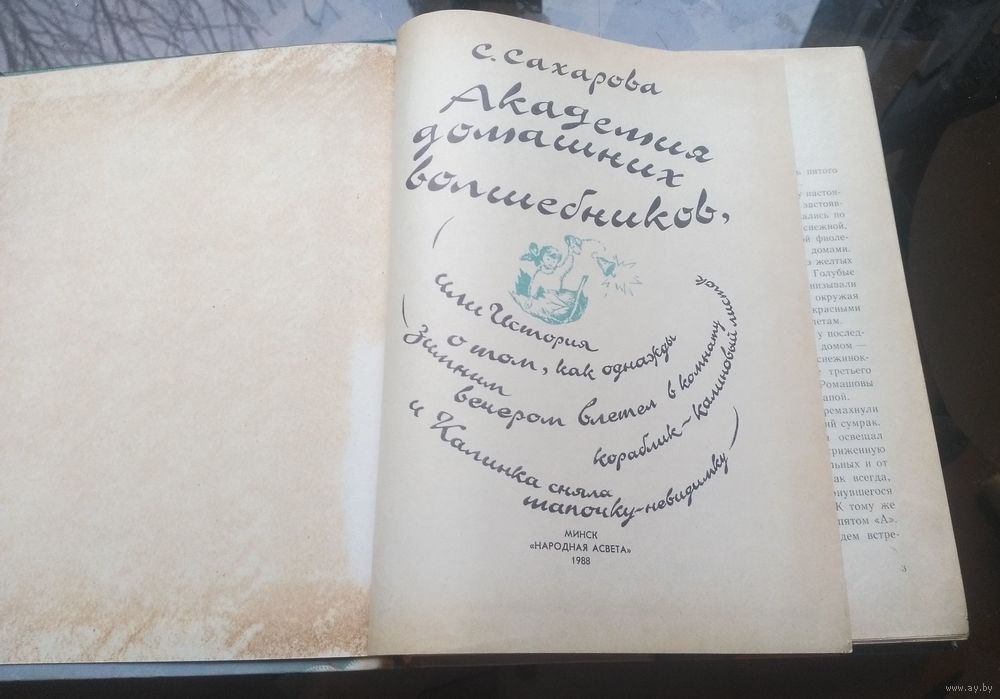 С. Сахарова
Академия
домашних
волшебников,
или История
о том, как однажды
зимним
вечером влетел в комнату
кораблик-калиновый листок
и Калинка сняла
тапочку-невидимку
МИНСК
«НАРОДНАЯ АСВЕТА»
1988
пятого
у настоя-
застояв-
ались по
снежной.
й фиоле-
домами.
желтых
Голубые
низывали
окружая
красными
летам.
у послед-
домом —
снежинок-
третьего
Ромашовы
апой.
ремахнули
ий сумрак.
освещал
триженную
льных и от
ак всегда,
онувшегося
К тому же
пятом «А».
дем встре-
3
www.ay.by